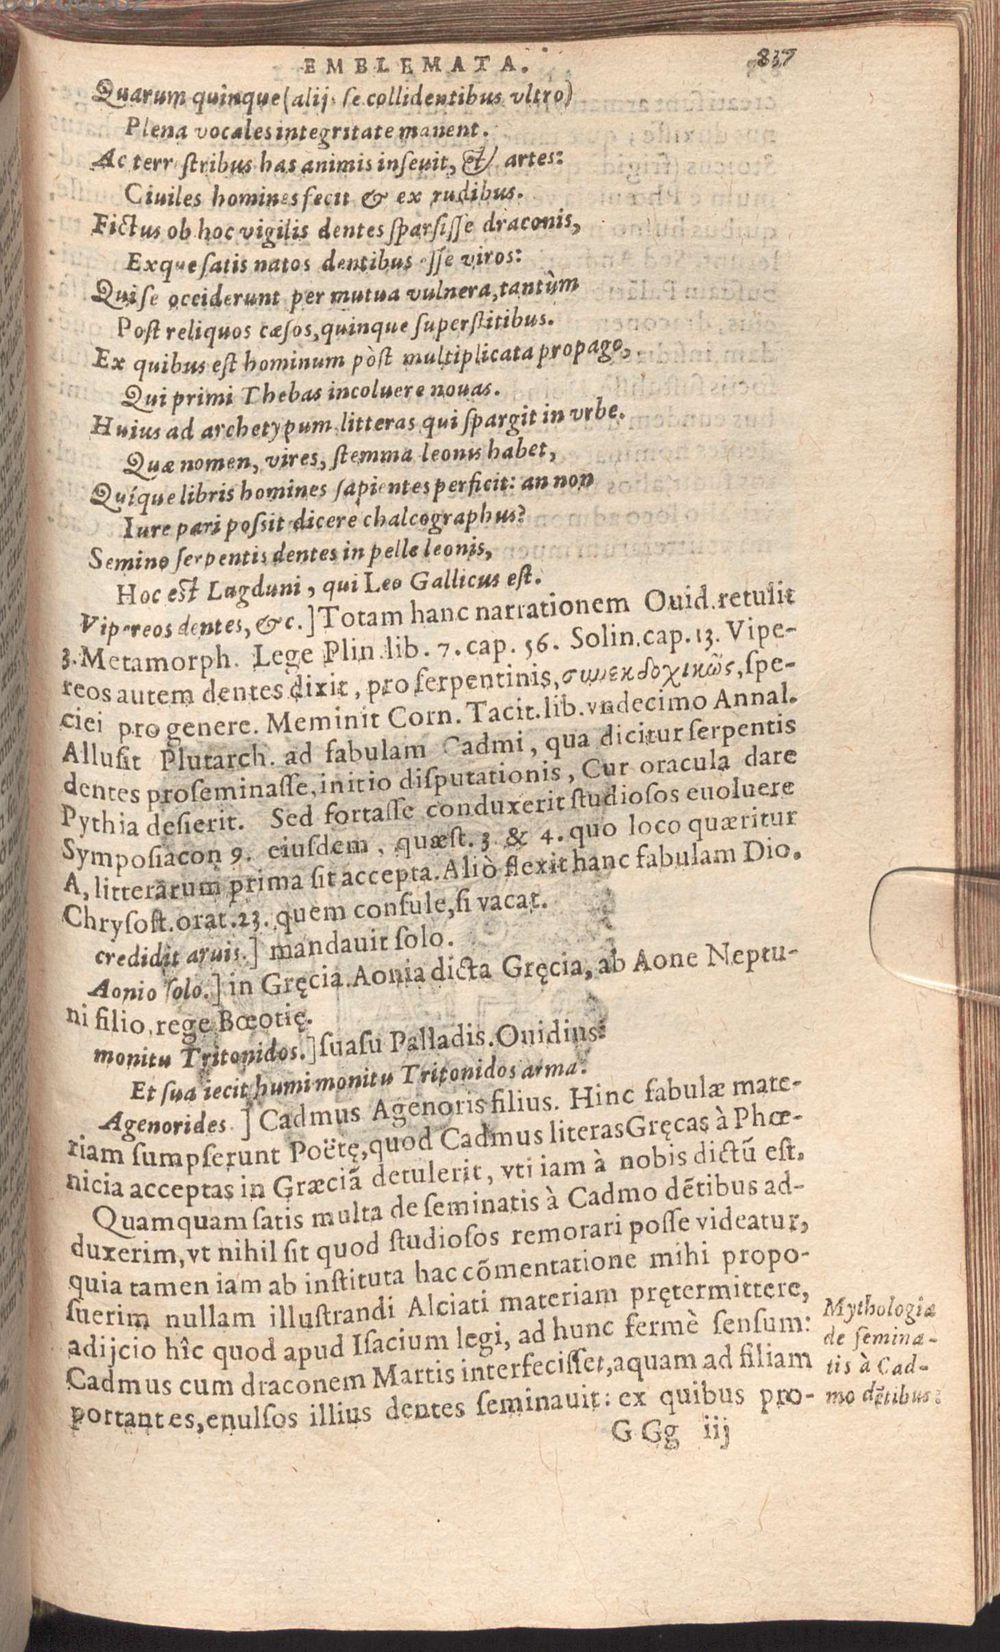 EMBLEMATA. 837
Quarum quinque (alijs se collidentibus vltro)
Plena vocales integritate manent.
Ac terrestribus has animis inseuit, & artes:
Ciuiles homines fecit & ex rudibus.
Fictus ob hoc vigilis dentes sparsisse draconis,
Exque satis natos dentibus esse viros:
Qui se occiderunt per mutua vulnera, tantùm
Post reliquos cæsos, quinque superstitibus.
Ex quibus est hominum pòst multiplicata propago,
Qui primi Thebas incoluere nouas.
Huius ad archetypum litteras qui spargit in vrbe.
Quæ nomen, vires, stemma leonis habet,
Quíque libris homines sapientes perficit: an non
Iure pari possit dicere chalcographus?
Semino serpentis dentes in pelle leonis,
Hoc est Lugduni, qui Leo Gallicus est.
Vipereos dentes, &c.] Totam hanc narrationem Ouid. retulit
3. Metamorph. Lege Plin. lib. 7. cap. 56. Solin. cap. 13. Vipe-
reos autem dentes dixit, pro serpentinis, συνεκδοχικῶς, spe-
ciei pro genere. Meminit Corn. Tacit. lib. vndecimo Annal.
Allusit Plutarch. ad fabulam Cadmi, qua dicitur serpentis
dentes proseminasse, initio disputationis, Cur oracula dare
Pythia desierit. Sed fortasse conduxerit studiosos euoluere
Symposiacon 9. eiusdem, quæst. 3 & 4. quo loco quæritur
A, litterarum prima sit accepta. Aliò flexit hanc fabulam Dio.
Chrysost. orat. 23. quem consule, si vacat.
credidit aruis.] mandauit solo.
Aonio solo.] in Gręcia. Aonia dicta Gręcia, ab Aone Neptu-
ni filio, rege Bœotię.
monitu Tritonidos.] suasu Palladis. Ouidius:
Et sua iecit humi monitu Tritonidos arma.
Agenorides.] Cadmus Agenoris filius. Hinc fabulæ mate-
riam sumpserunt Poëtę, quod Cadmus literas Gręcas à Phœ-
nicia acceptas in Græciã detulerit, vti iam à nobis dictũ est.
Quamquam satis multa de seminatis à Cadmo dẽtibus ad-
duxerim, vt nihil sit quod studiosos remorari posse videatur,
quia tamen iam ab instituta hac cõmentatione mihi propo-
suerim nullam illustrandi Alciati materiam prętermittere,
adijcio hîc quod apud Isacium legi, ad hunc fermè sensum:
Cadmus cum draconem Martis interfecisset, aquam ad filiam
portantes, euulsos illius dentes seminauit: ex quibus pro-
Mythologiæ
de semina-
tis à Cad-
mo dẽtibus.
GGg iij